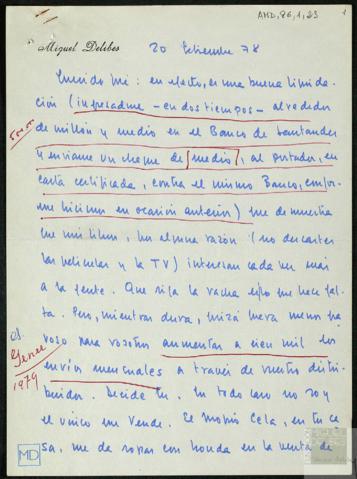 AMD, 86, 1, 23
1
Miguel Delibes
20 Setiembre 78
Querido mi: en efecto, es una buena liquida-
ción (ingresadme -en dos tiempos- alrededor
de millón y medio en el Banco de Santander
y enviame un cheque de [medio], al portador, en
carta certificada, contra el mismo Banco, confor-
me hicimos en ocasión anterior) que demuestra
que mis libros, por alguna razón (no descartes
las películas y la TV) interesan cada vez más
a la gente. Que siga la racha que me hace fal-
ta. Pero, mientras dura, quizá fuera menos pa-
voso para vosotros aumentar a cien mil los
envíos mensuales a través de vuestro distri-
buidor. Decide tú. En todo caso no soy
el único que vende. El propio Cela, en tu ca-
sa, me da sopas con honda en la venta de
Enero
1979
MD